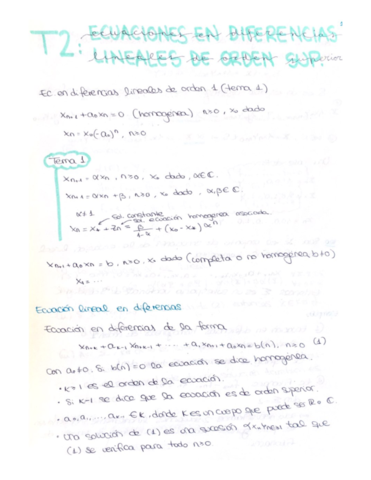 1
T2: ECUACIONES EN DIFERENCIAS
LINEALES DE ORDEN SUPERIOR
Ec en diferencias lineales de orden 1 (tema 1)
xₙ₊₁ + a₀xₙ = 0 (homogénea) n≥0, x₀ dado
xₙ = x₀(-a₀)ⁿ, n≥0
Tema 1
xₙ₊₁ = αxₙ, n≥0, x₀ dado, α∈ℂ.
xₙ₊₁ = αxₙ + β, n≥0, x₀ dado, α,β∈ℂ.
α≠1 sol. constante
sol ecuación homogénea asociada
xₙ = x* + zₙ = β/(1-α) + (x₀ - x*)αⁿ
xₙ₊₁ + a₀xₙ = b, n≥0, x₀ dado (completa o no homogénea, b≠0)
Ecuación lineal en diferencias
Ecuación en diferencias de la forma
xₙ₊ₖ + aₖ₋₁xₙ₊ₖ₋₁ + ... + a₁xₙ₊₁ + a₀xₙ = b(n), n≥0 (1)
Con a₀≠0, Si b(n)=0 la ecuación se dice homogénea.
· k≥1 es el orden de la ecuación.
· Si k>1 se dice que la ecuación es de orden superior.
· a₀, a₁, ..., aₖ₋₁ ∈ K, donde K es un cuerpo que puede ser ℝ o ℂ.
· Una solución de (1) es una sucesión {xₙ}ₙ≥₀ tal que
(1) se verifica para todo n≥0